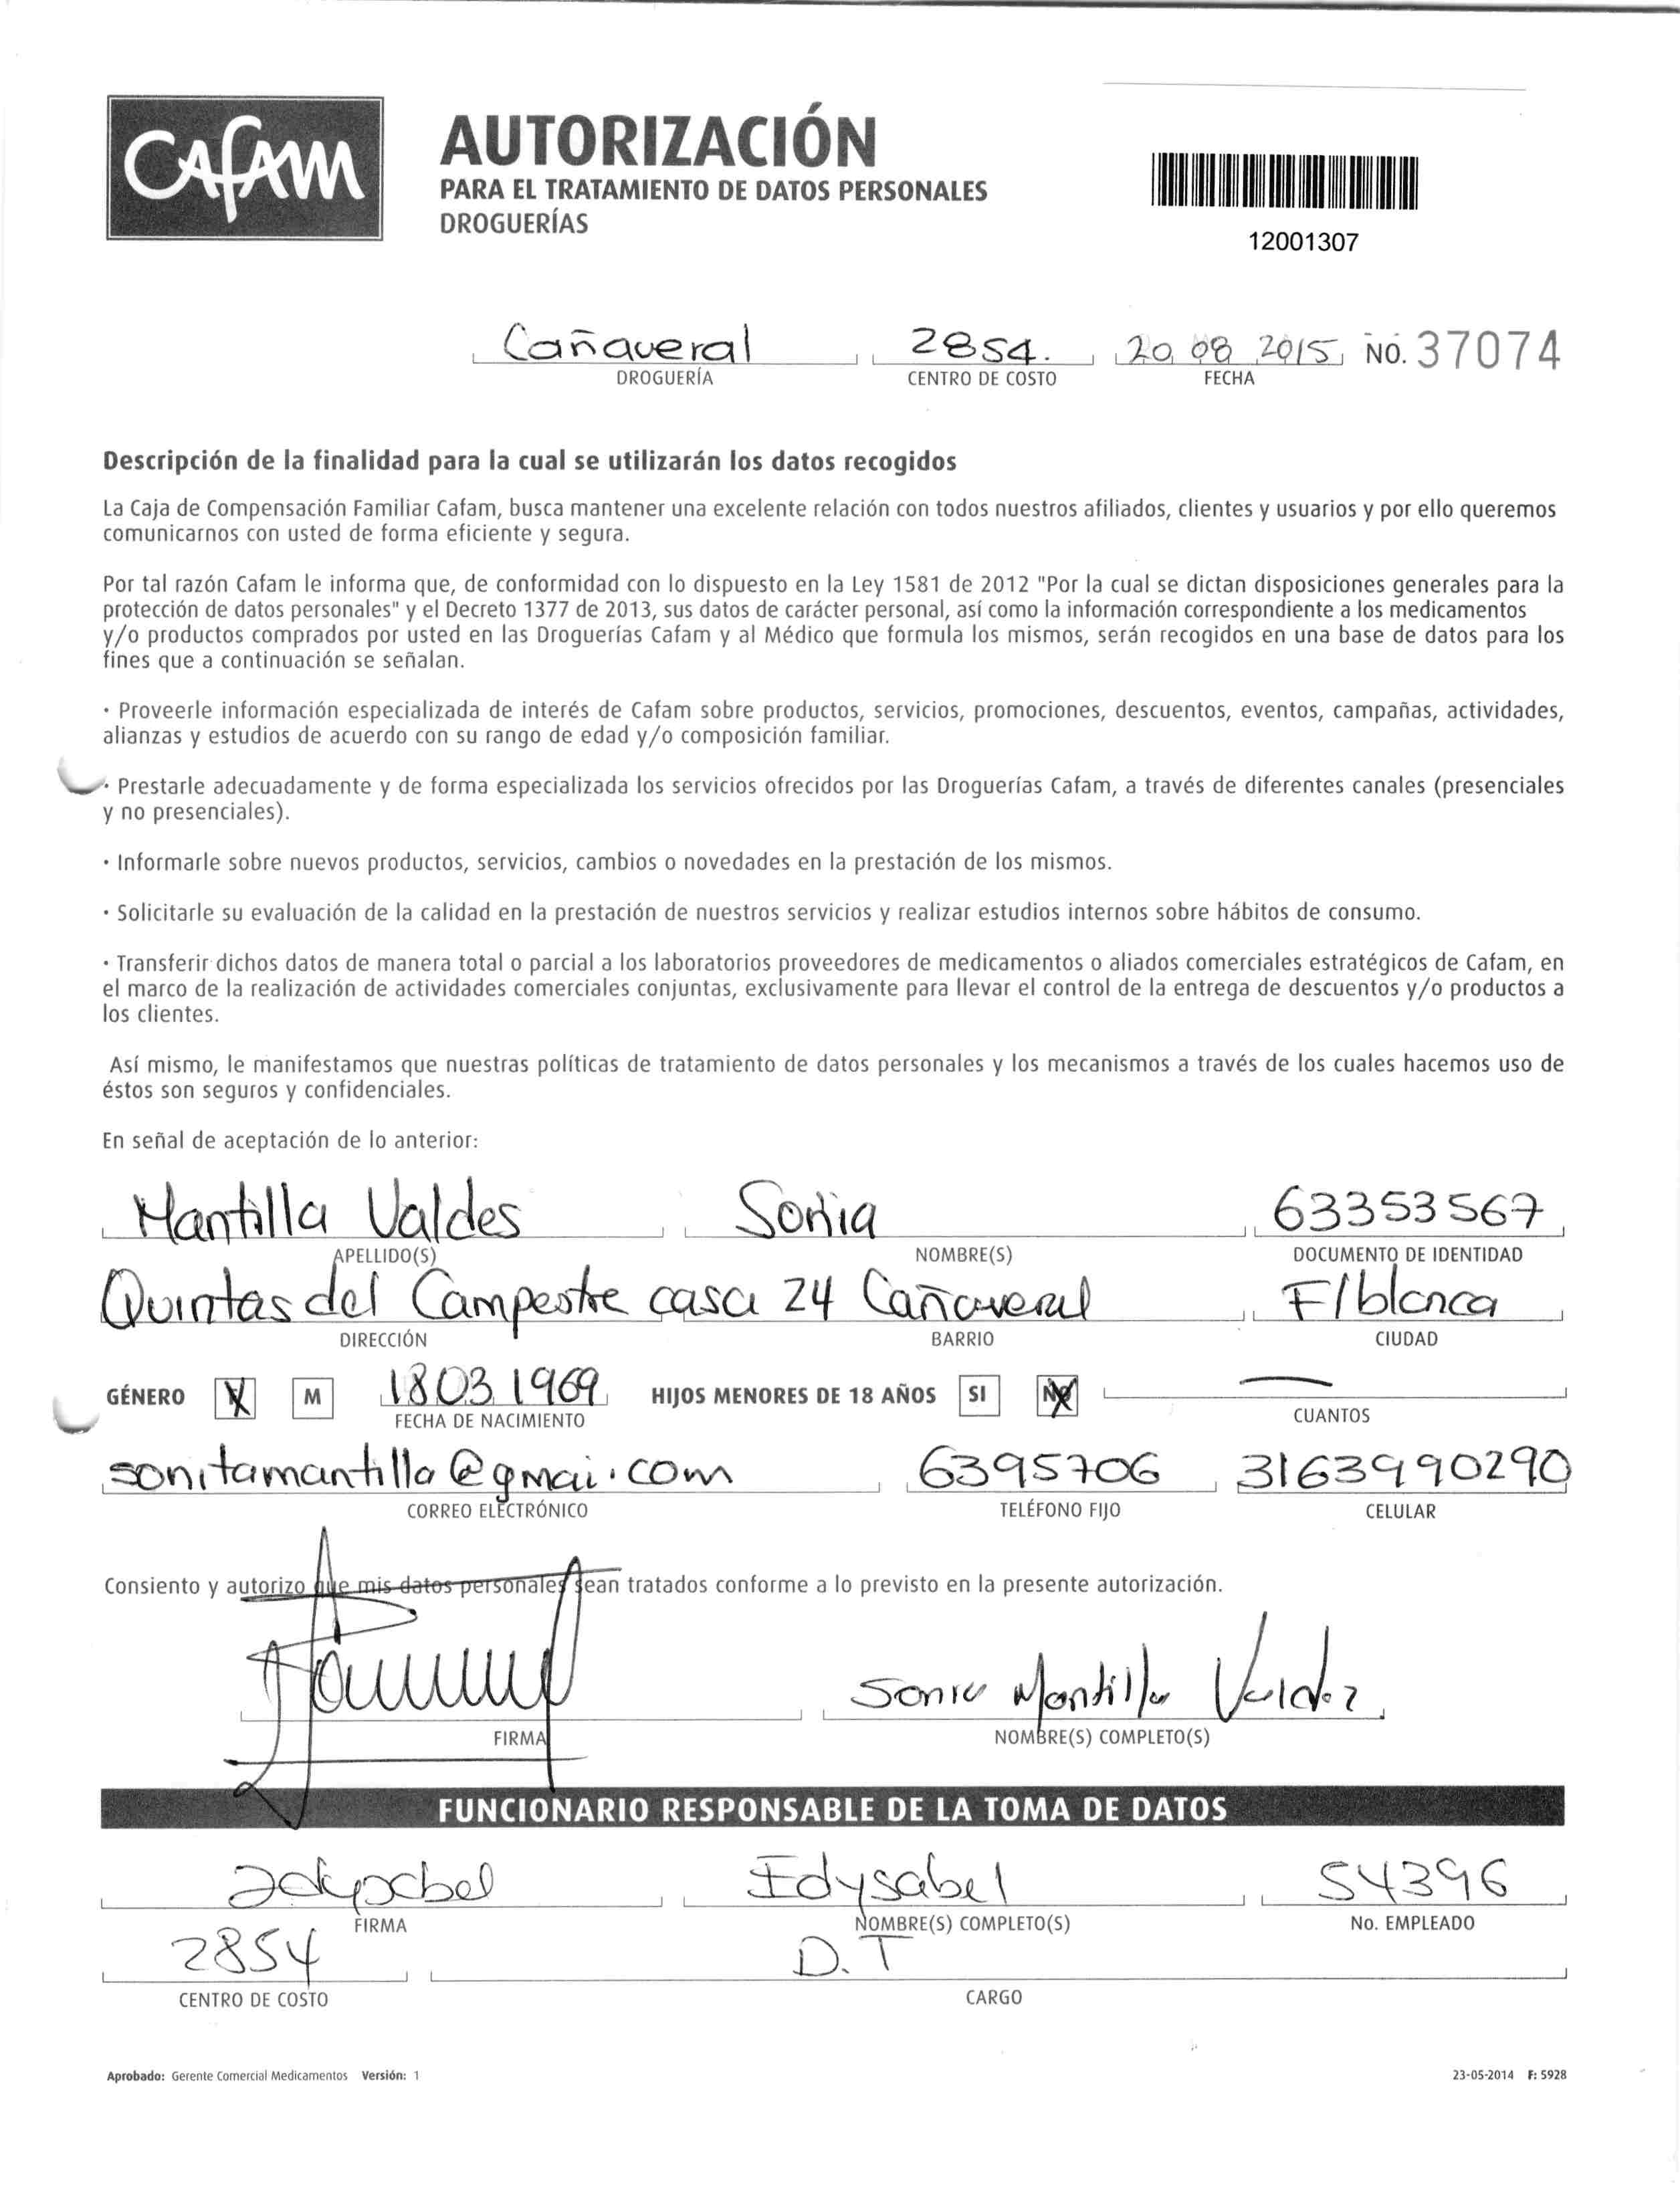 CAFAM
AUTORIZACIÓN
PARA EL TRATAMIENTO DE DATOS PERSONALES
DROGUERÍAS
12001307
Cañaveral 2854. 20 08 2015 NO. 37074
DROGUERÍA CENTRO DE COSTO FECHA
Descripción de la finalidad para la cual se utilizarán los datos recogidos
La Caja de Compensación Familiar Cafam, busca mantener una excelente relación con todos nuestros afiliados, clientes y usuarios y por ello queremos
comunicarnos con usted de forma eficiente y segura.
Por tal razón Cafam le informa que, de conformidad con lo dispuesto en la Ley 1581 de 2012 "Por la cual se dictan disposiciones generales para la
protección de datos personales" y el Decreto 1377 de 2013, sus datos de carácter personal, así como la información correspondiente a los medicamentos
y/o productos comprados por usted en las Droguerías Cafam y al Médico que formula los mismos, serán recogidos en una base de datos para los
fines que a continuación se señalan.
· Proveerle información especializada de interés de Cafam sobre productos, servicios, promociones, descuentos, eventos, campañas, actividades,
alianzas y estudios de acuerdo con su rango de edad y/o composición familiar.
· Prestarle adecuadamente y de forma especializada los servicios ofrecidos por las Droguerías Cafam, a través de diferentes canales (presenciales
y no presenciales).
· Informarle sobre nuevos productos, servicios, cambios o novedades en la prestación de los mismos.
· Solicitarle su evaluación de la calidad en la prestación de nuestros servicios y realizar estudios internos sobre hábitos de consumo.
· Transferir dichos datos de manera total o parcial a los laboratorios proveedores de medicamentos o aliados comerciales estratégicos de Cafam, en
el marco de la realización de actividades comerciales conjuntas, exclusivamente para llevar el control de la entrega de descuentos y/o productos a
los clientes.
Así mismo, le manifestamos que nuestras políticas de tratamiento de datos personales y los mecanismos a través de los cuales hacemos uso de
éstos son seguros y confidenciales.
En señal de aceptación de lo anterior:
Mantilla Valdes Sonia 63353567
APELLIDO(S) NOMBRE(S) DOCUMENTO DE IDENTIDAD
Quintas del Campestre casa 24 Cañaveral F/blanca
DIRECCIÓN BARRIO CIUDAD
GÉNERO M 18 03 1969 HIJOS MENORES DE 18 AÑOS SI NO —
FECHA DE NACIMIENTO CUANTOS
sonitamantilla@gmai.com 6395706 3163990290
CORREO ELECTRÓNICO TELÉFONO FIJO CELULAR
Consiento y autorizo que mis datos personales sean tratados conforme a lo previsto en la presente autorización.
Sonia Mantilla Valdez
FIRMA NOMBRE(S) COMPLETO(S)
FUNCIONARIO RESPONSABLE DE LA TOMA DE DATOS
Edysabel 54396
FIRMA NOMBRE(S) COMPLETO(S) No. EMPLEADO
2854 D.T
CENTRO DE COSTO CARGO
Aprobado: Gerente Comercial Medicamentos Versión: 1 23-05-2014 F: 5928